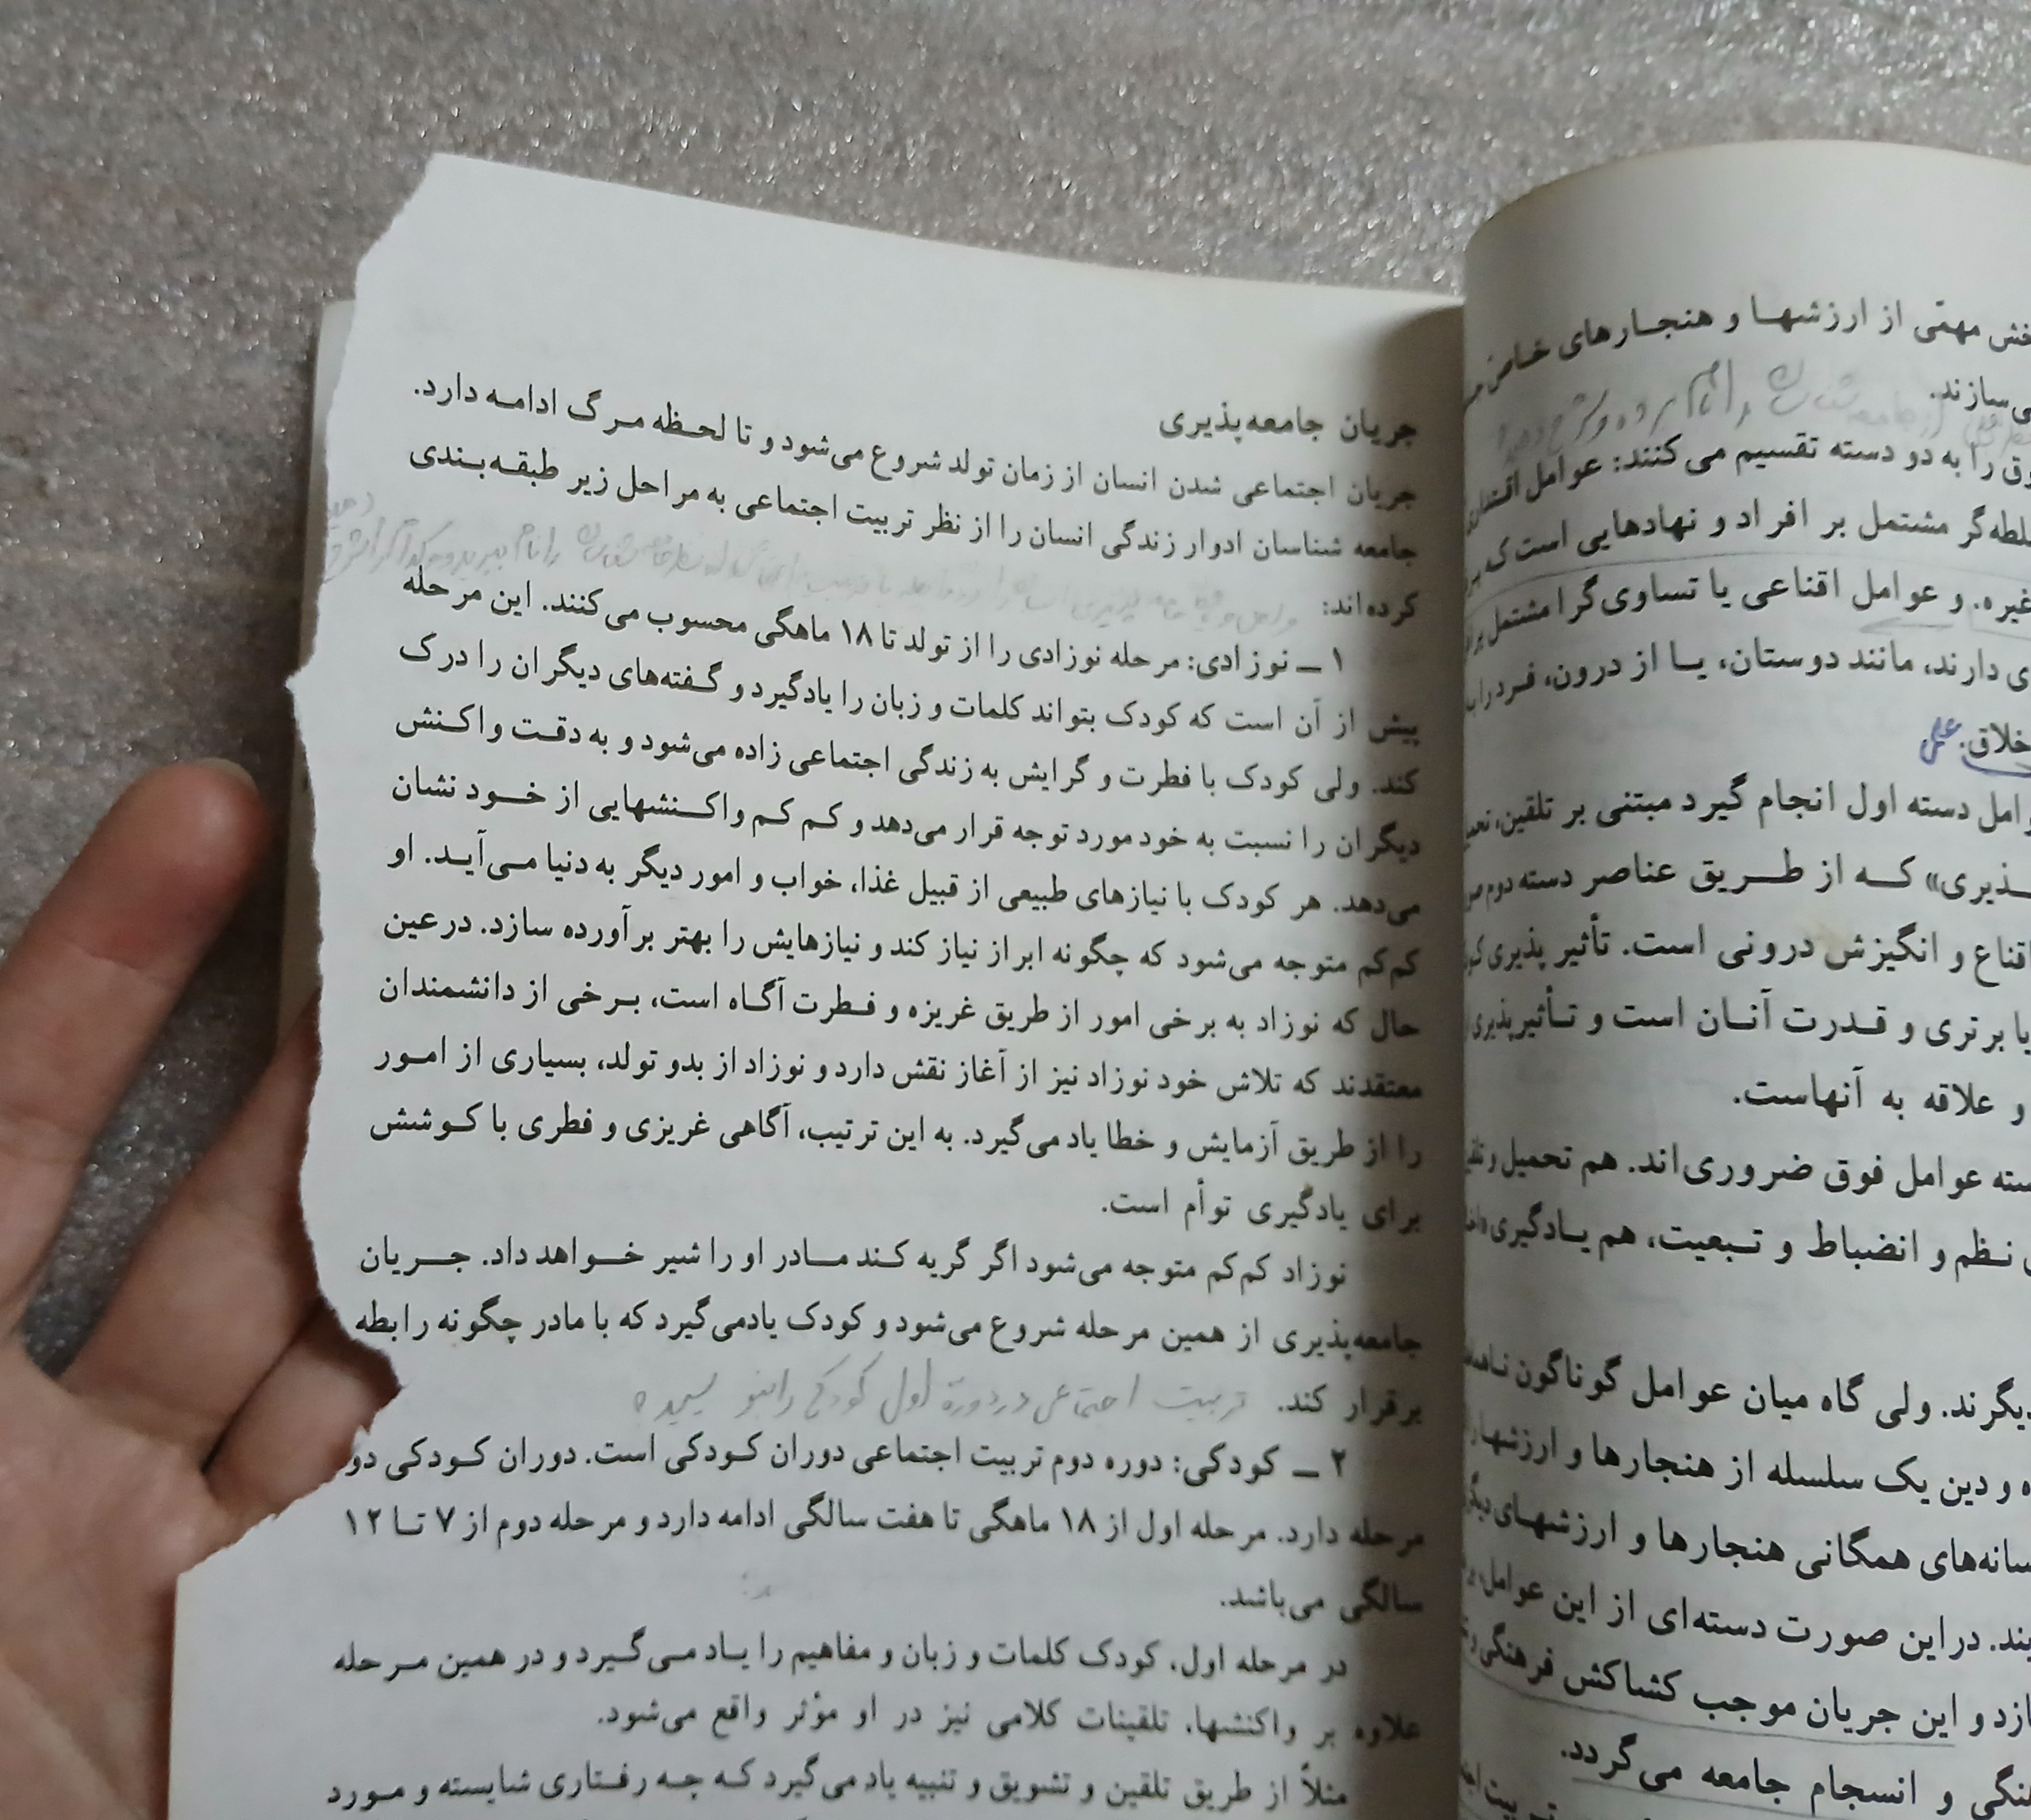 جریان جامعه‌پذیری
جریان اجتماعی شدن انسان از زمان تولد شروع می‌شود و تا لحظه مرگ ادامه دارد.
جامعه شناسان ادوار زندگی انسان را از نظر تربیت اجتماعی به مراحل زیر طبقه‌بندی
کرده‌اند:
۱ ـ نوزادی: مرحله نوزادی را از تولد تا ۱۸ ماهگی محسوب می‌کنند. این مرحله
پیش از آن است که کودک بتواند کلمات و زبان را یادگیرد و گفته‌های دیگران را درک
کند. ولی کودک با فطرت و گرایش به زندگی اجتماعی زاده می‌شود و به دقت واکنش
دیگران را نسبت به خود مورد توجه قرار می‌دهد و کم کم واکنشهایی از خود نشان
می‌دهد. هر کودک با نیازهای طبیعی از قبیل غذا، خواب و امور دیگر به دنیا می‌آید. او
کم‌کم متوجه می‌شود که چگونه ابراز نیاز کند و نیازهایش را بهتر برآورده سازد. درعین
حال که نوزاد به برخی امور از طریق غریزه و فطرت آگاه است، برخی از دانشمندان
معتقدند که تلاش خود نوزاد نیز از آغاز نقش دارد و نوزاد از بدو تولد، بسیاری از امور
را از طریق آزمایش و خطا یاد می‌گیرد. به این ترتیب، آگاهی غریزی و فطری با کوشش
برای یادگیری توأم است.
نوزاد کم‌کم متوجه می‌شود اگر گریه کند مادر او را شیر خواهد داد. جریان
جامعه‌پذیری از همین مرحله شروع می‌شود و کودک یادمی‌گیرد که با مادر چگونه رابطه
برقرار کند. تربیت اجتماعی در دورهٔ اول کودکی را
۲ ـ کودکی: دوره دوم تربیت اجتماعی دوران کودکی است. دوران کودکی دو
مرحله دارد. مرحله اول از ۱۸ ماهگی تا هفت سالگی ادامه دارد و مرحله دوم از ۷ تا ۱۲
سالگی می‌باشد.
در مرحله اول، کودک کلمات و زبان و مفاهیم را یاد می‌گیرد و در همین مرحله
علاوه بر واکنشها، تلقینات کلامی نیز در او مؤثر واقع می‌شود.
مثلاً از طریق تلقین و تشویق و تنبیه یاد می‌گیرد که چه رفتاری شایسته و مورد
مهمّی از ارزشها و هنجارهای خاص
سازند.
را به دو دسته تقسیم می‌کنند: عوامل
مشتمل بر افراد و نهادهایی است که
غیره. و عوامل اقناعی یا تساوی‌گرا مشتمل بر
دارند، مانند دوستان، یا از درون، فرد را
علمی
دسته اول انجام گیرد مبتنی بر تلقین،
که از طریق عناصر دسته دوم
و انگیزش درونی است. تأثیر پذیری
یا برتری و قدرت آنان است و تأثیرپذیری
و علاقه به آنهاست.
عوامل فوق ضروری‌اند. هم تحمیل و
نظم و انضباط و تبعیت، هم یادگیری
ولی گاه میان عوامل گوناگون
و دین یک سلسله از هنجارها و ارزشها
همگانی هنجارها و ارزشهای
دراین صورت دسته‌ای از این عوامل،
و این جریان موجب کشاکش فرهنگی و
و انسجام جامعه می‌گردد.